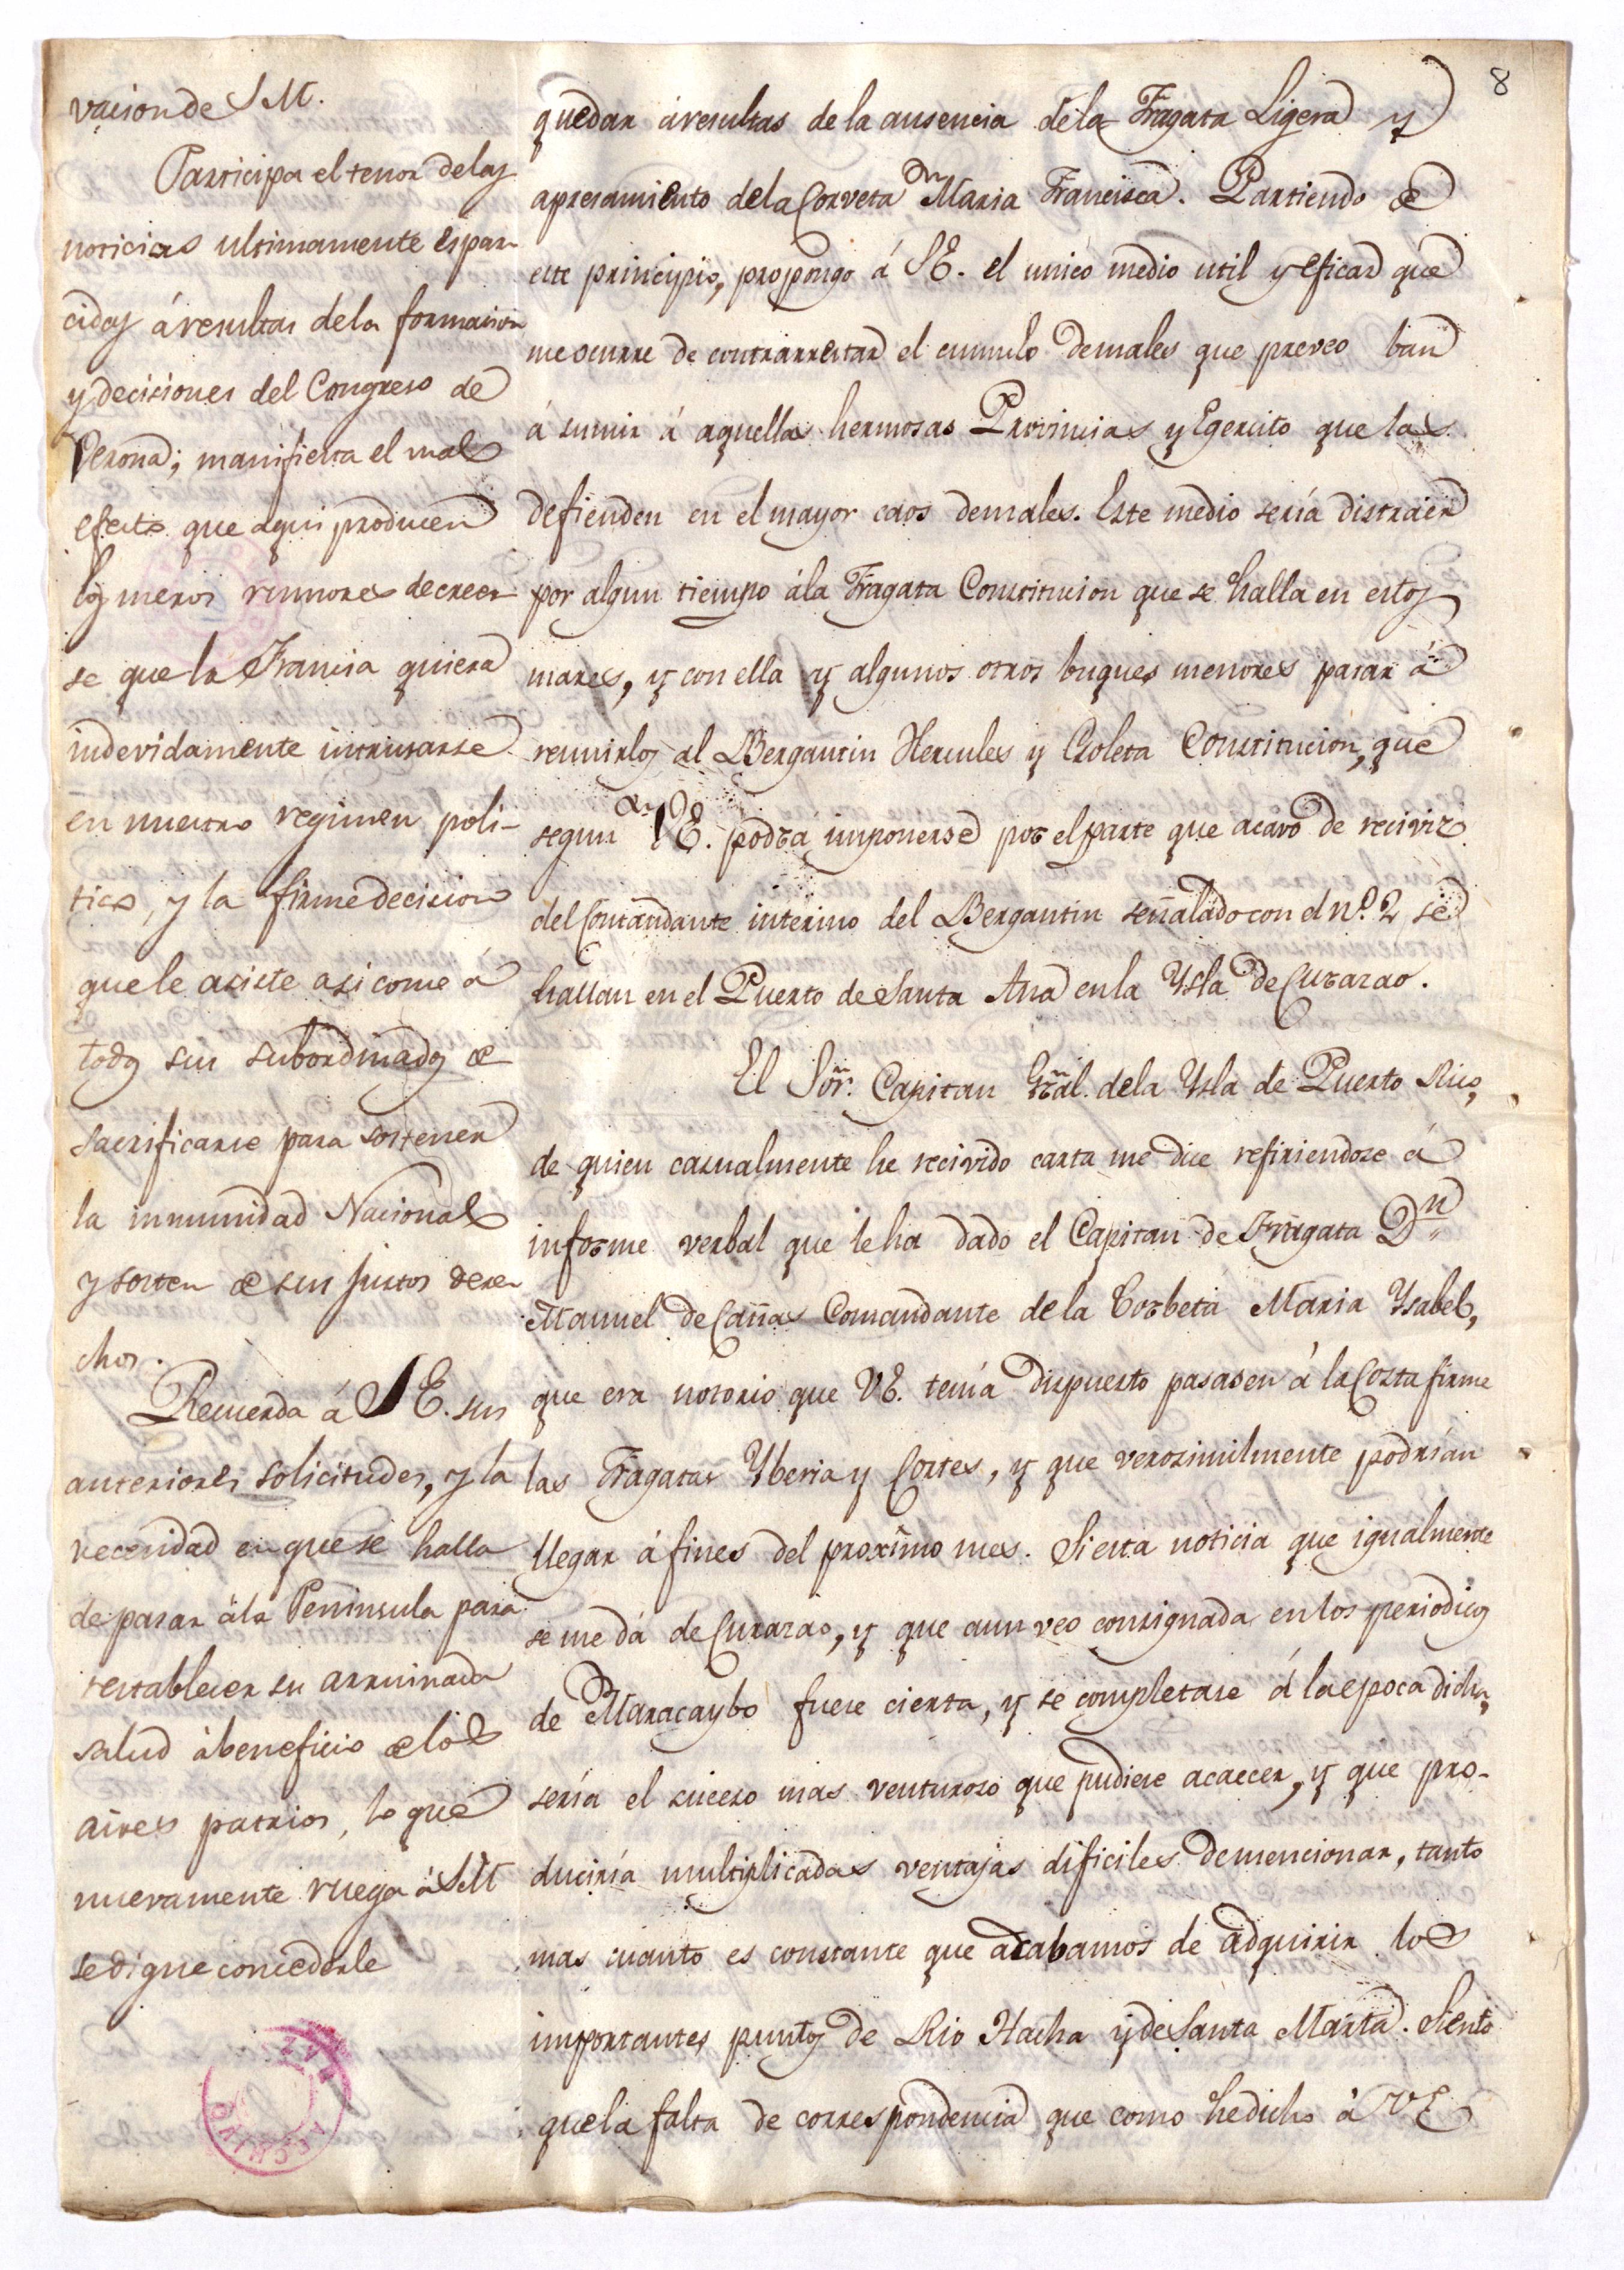 8
vacion de S M.
Participa el tenor de las
noticias ultimamente espar-
cidas á resultas de la formacion
y decisiones del Congreso de
Verona; manifiesta el mal
efecto que aqui producen
los meros rumores de creer-
se que la Francia quiera
indevidamente intrusarse
en nuestro regimen poli-
tico, y la firme decision
que le asiste asi como á
todos sus subordinados de
sacrificarse para sostener
la inmunidad Nacional
y sosten de sus justos dere-
chos.
Recuerda á S E. sus
anteriores solicitudes, y la
necesidad en que se halla
de pasar á la Peninsula para
restablecer su arruinada
salud á beneficio de los
aires patrios, lo que
nuevamente ruega á S M
se digne concederle
quedar á resultas de la ausencia de la Fragata Ligera y
apresamiento de la Corveta Maria Francisca. Partiendo de
este principio, propongo á S E. el unico medio util y eficaz que
me ocurre de contrarrestar el cumulo de males que preveo ban
á sumir á aquellas hermosas Provincias y Egercito que las
defienden en el mayor caos de males. Este medio sería distraer
por algun tiempo á la Fragata Constitucion que se halla en estos
mares, y con ella y algunos otros buques menores pasar á
reunirlos al Bergantin Hercules y Goleta Constitucion, que
segun V E. podrá imponerse por el parte que acavo de recivir
del Comandante interino del Bergantin señalado con el nº. 2, se
hallan en el Puerto de Santa Ana en la Ysla de Curazao.
El Sor. Capitan Gral. de la Ysla de Puerto Rico,
de quien casualmente he recivido carta me dice refiriendose á
informe verbal que le ha dado el Capitan de Fragata Dn
Manuel de Cañas Comandante de la Corbeta Maria Ysabel,
que era notorio que V E. tenía dispuesto pasasen á la Costa firme
las Fragatas Yberia y Cortes, y que verosimilmente podrían
llegar á fines del proximo mes. Si esta noticia que igualmente
se me dá de Curazao, y que aun veo consignada en los periodicos
de Maracaybo fuese cierta, y se completase á la epoca dicha,
sería el suceso mas venturoso que pudiese acaecer, y que pro-
duciría multiplicadas ventajas dificiles de mencionar, tanto
mas cuanto es constante que acabamos de adquirir los
importantes puntos de Rio Hacha y de Santa Marta. Siento
que la falta de correspondencia que como he dicho á V E